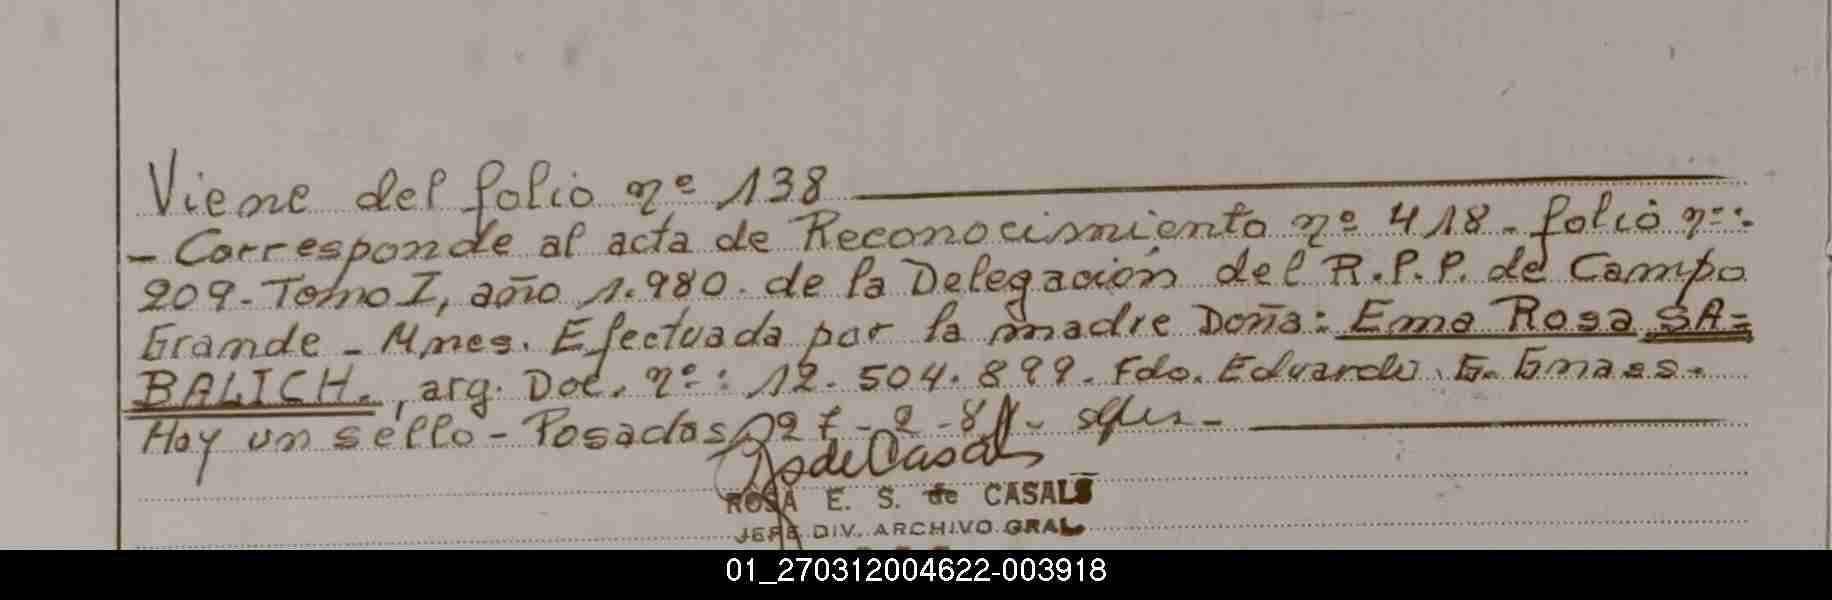 Viene del folio nº 138
- Corresponde al acta de Reconocimiento nº 418 - folio nº:
209 - Tomo I, año 1.980. de la Delegación del R.P.P. de Campo
Grande - Mnes. Efectuada por la madre Doña: Ema Rosa SA=
BALICH., arg. Doc. nº: 12.504.899. Fdo. Eduardo G.
Hay un sello - Posadas, 27-2-81-
ROSA E. S. de CASALS
JEFE DIV. ARCHIVO GRAL
01_270312004622-003918